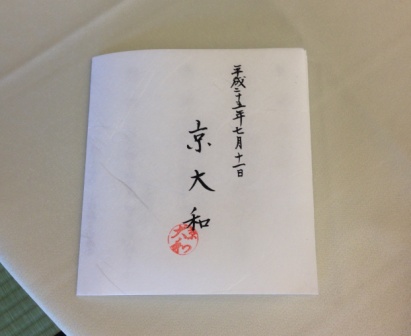 平成二十五年七月十一日
京大和